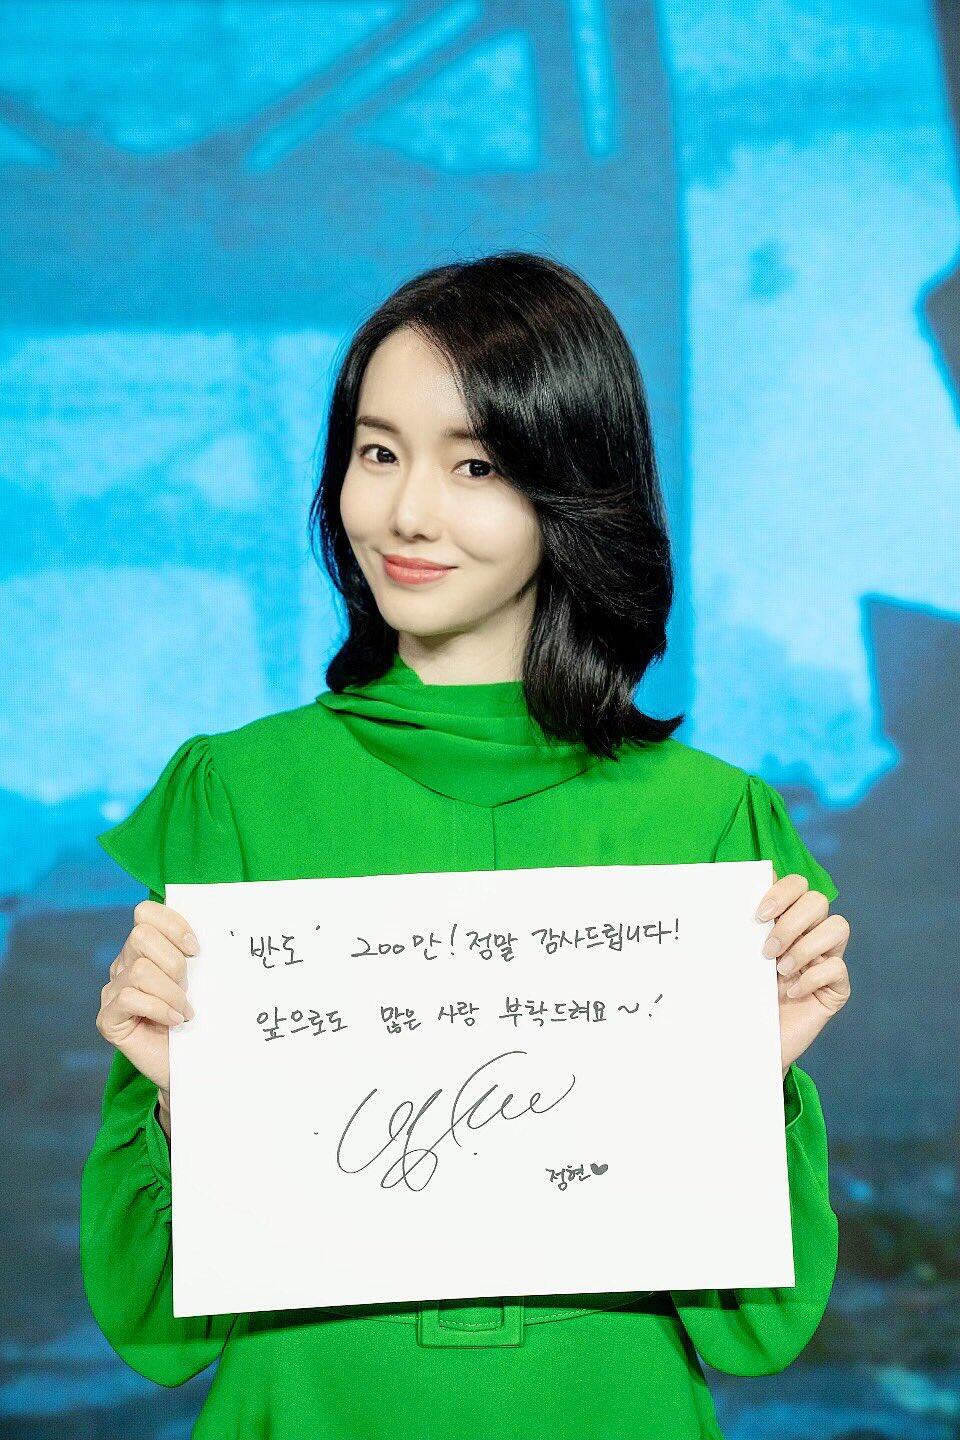 '반도' 200만! 정말 감사드립니다!
앞으로도 많은 사랑 부탁드려요~!
정현♥